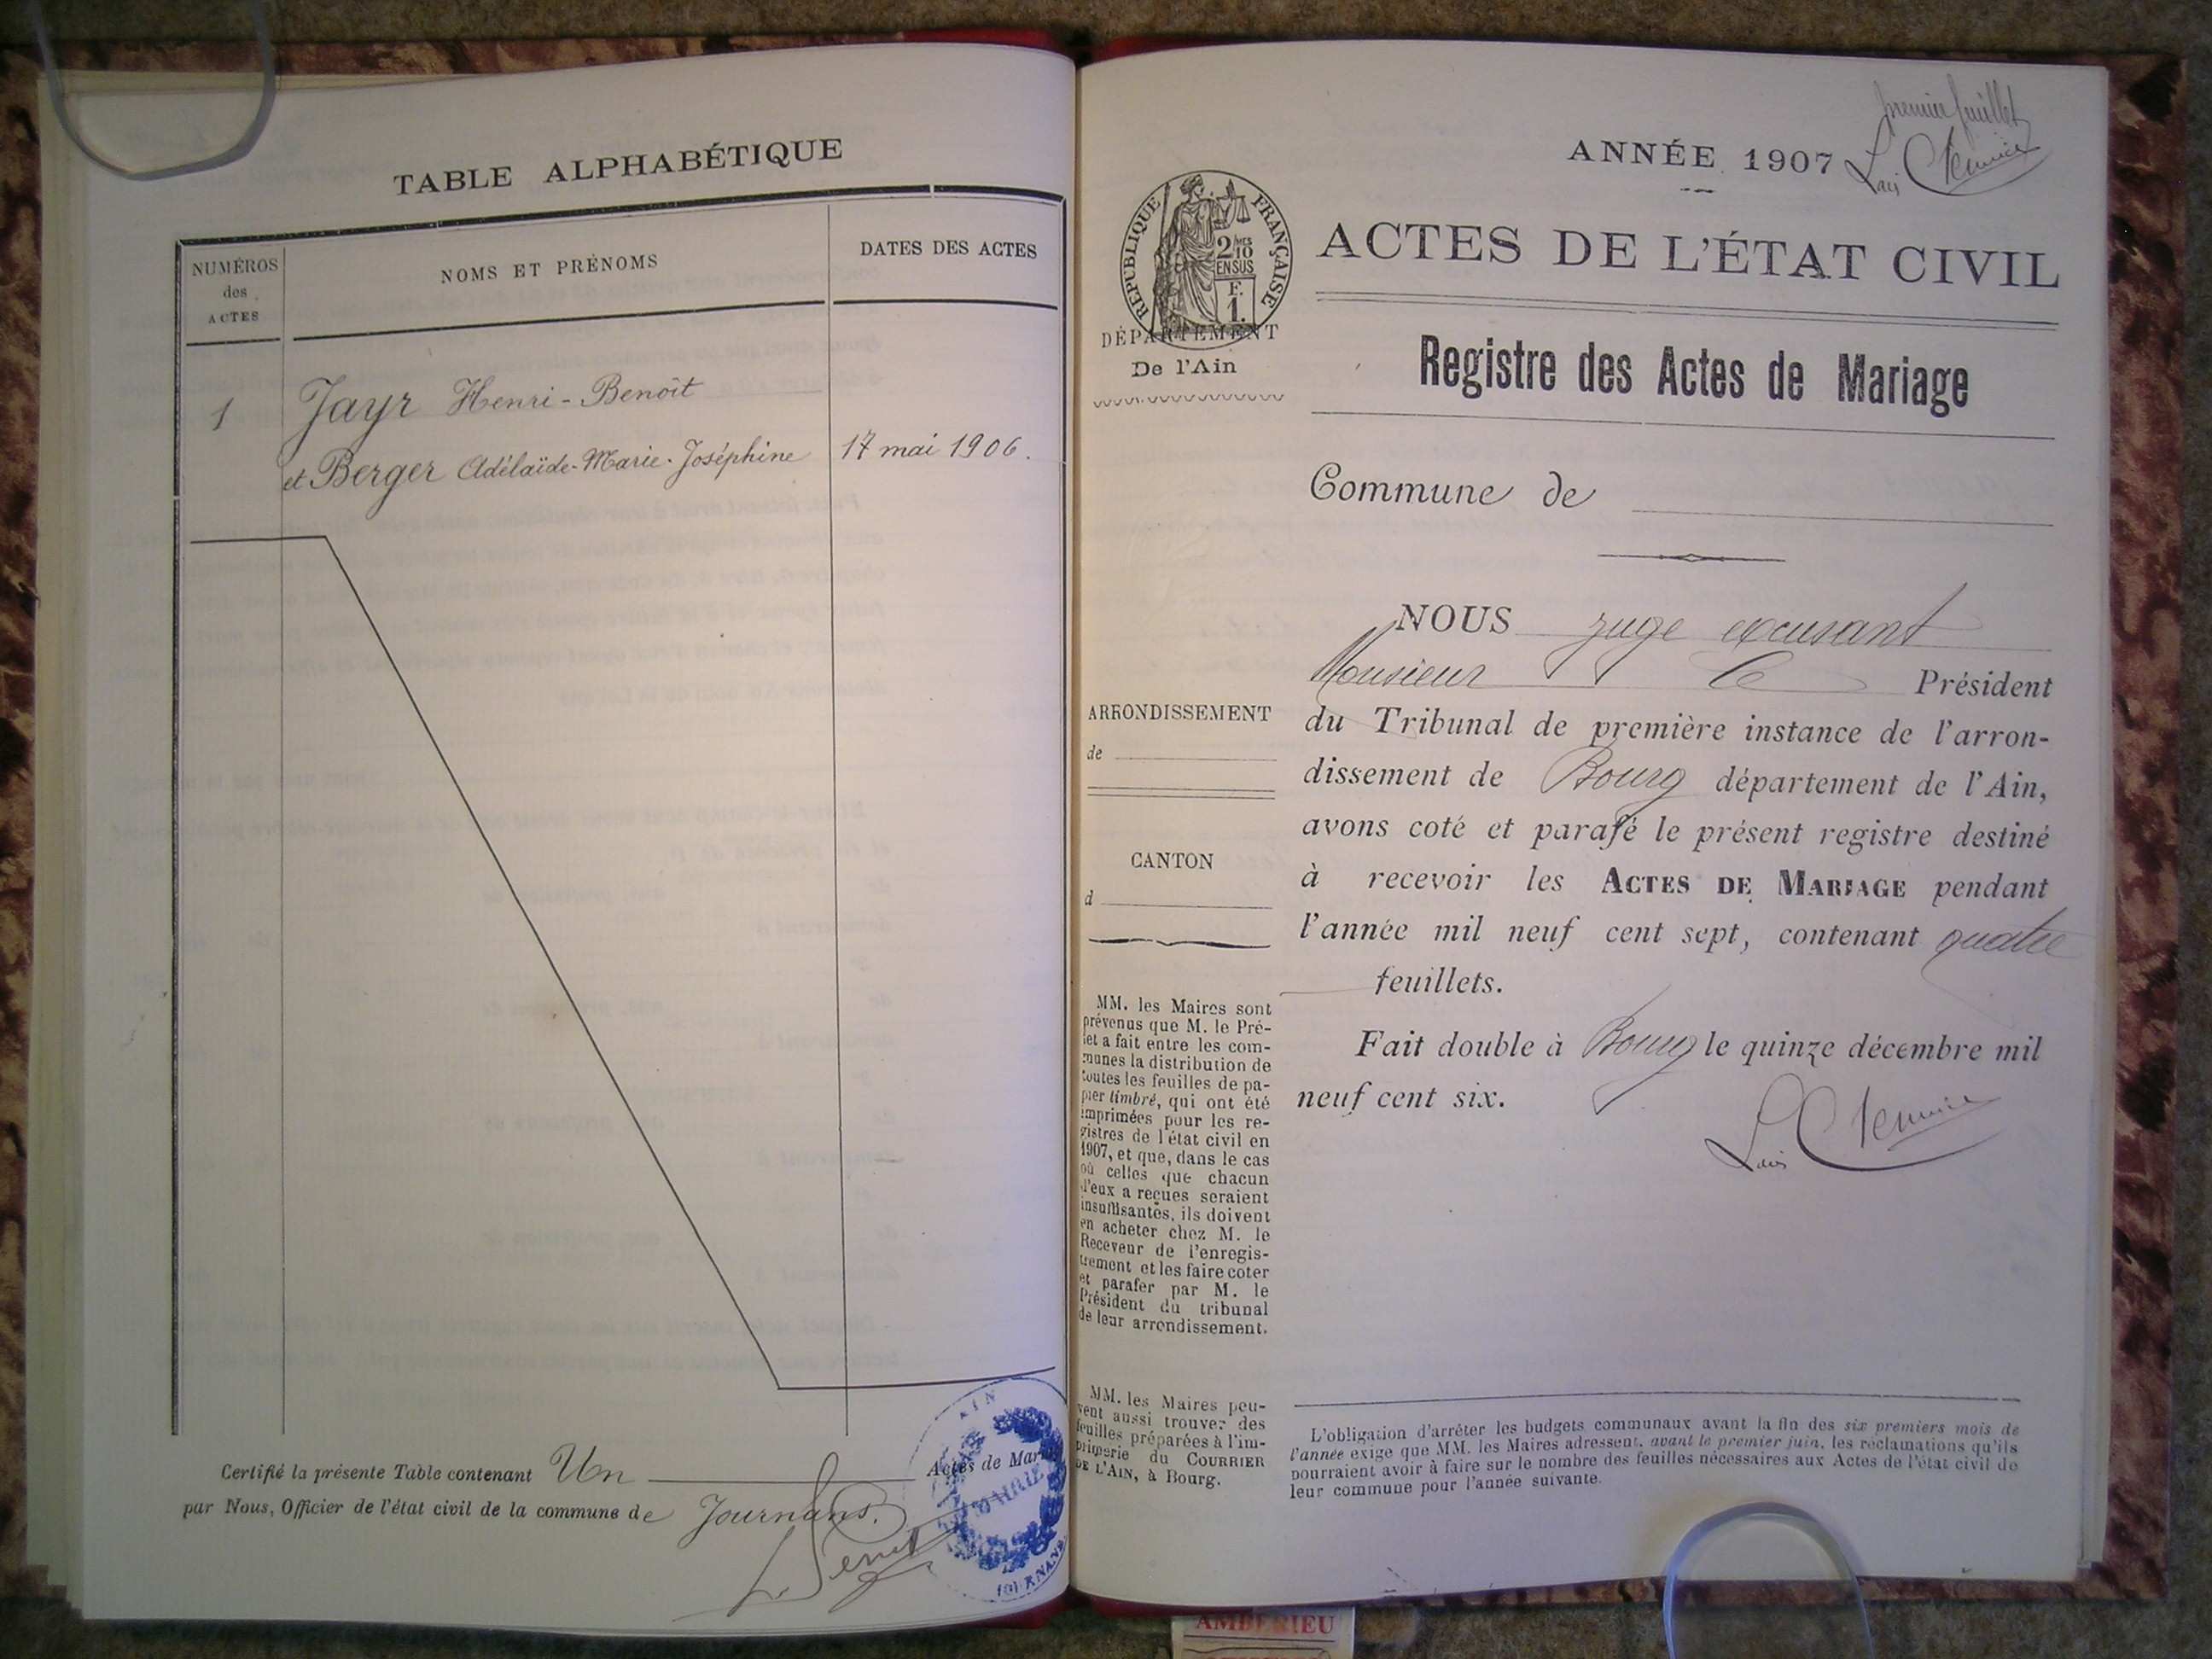 TABLE ALPHABÉTIQUE
NUMÉROS
des
ACTES
NOMS ET PRÉNOMS
DATES DES ACTES
1
Jayr Henri-Benoît
et Berger Adélaïde-Marie-Joséphine
17 mai 1906.
Certifié la présente Table contenant Un Actes de Mar
par Nous, Officier de l'état civil de la commune de Journans.
AIN
MAIRIE
JOURNANS
premier feuillet
ANNÉE 1907
RÉPUBLIQUE FRANÇAISE
2/10 MES
EN SUS
F.
1.
ACTES DE L'ÉTAT CIVIL
DÉPARTEMENT
De l'Ain
Registre des Actes de Mariage
Commune de
NOUS juge excusant
Monsieur le Président
ARRONDISSEMENT
de
du Tribunal de première instance de l'arron-
dissement de Bourg département de l'Ain,
avons coté et parafé le présent registre destiné
CANTON
d
à recevoir les ACTES DE MARIAGE pendant
l'année mil neuf cent sept, contenant quatre
feuillets.
Fait double à Bourg le quinze décembre mil
neuf cent six.
MM. les Maires sont
prévenus que M. le Pré-
fet a fait entre les com-
munes la distribution de
toutes les feuilles de pa-
pier timbré, qui ont été
imprimées pour les re-
gistres de l'état civil en
1907, et que, dans le cas
où celles que chacun
d'eux a reçues seraient
insuffisantes, ils doivent
en acheter chez M. le
Receveur de l'enregis-
trement et les faire coter
et parafer par M. le
Président du tribunal
de leur arrondissement.
MM. les Maires peu-
vent aussi trouver des
feuilles préparées à l'im-
primerie du COURRIER
DE L'AIN, à Bourg.
L'obligation d'arrêter les budgets communaux avant la fin des six premiers mois de
l'année exige que MM. les Maires adressent, avant le premier juin, les réclamations qu'ils
pourraient avoir à faire sur le nombre des feuilles nécessaires aux Actes de l'état civil de
leur commune pour l'année suivante.
AMBERIEU